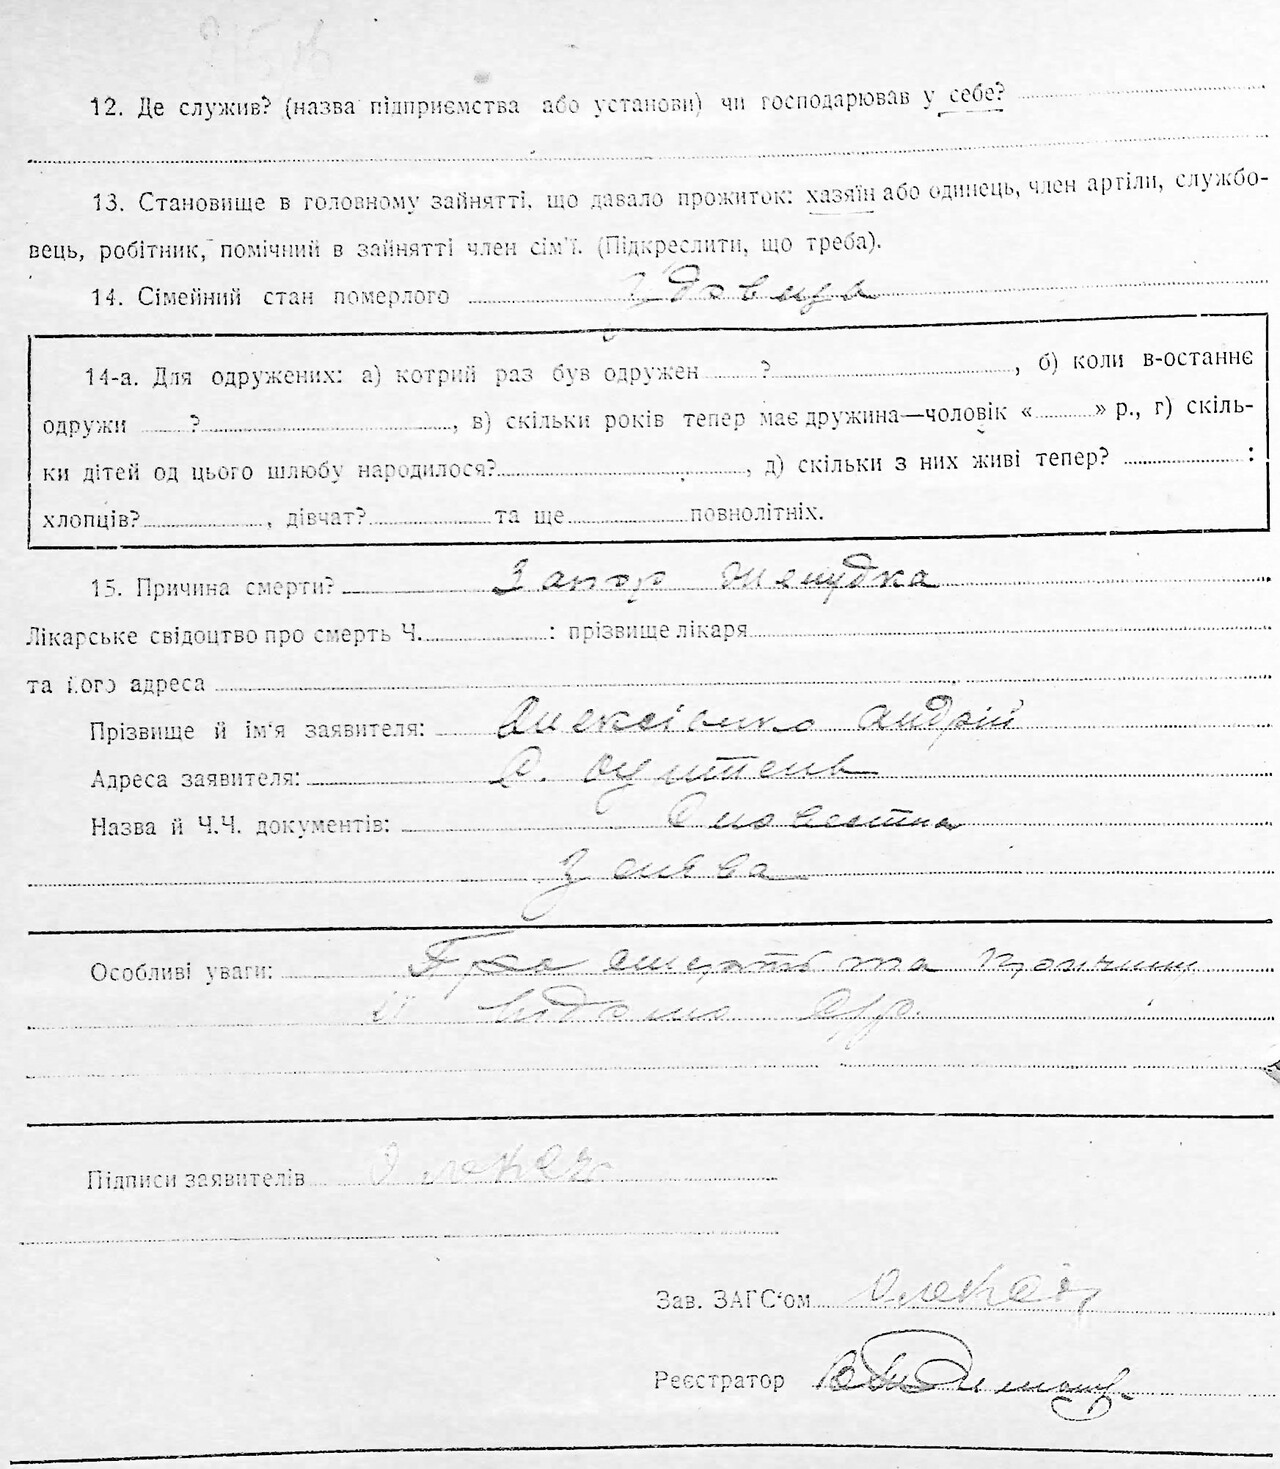 12. Де служив? (назва підприємства або установи) чи господарював у себе?
13. Становище в головному зайнятті, що давало прожиток: хазяїн або одинець, член артілі, службо-
вець, робітник, помічний в зайнятті член сім'ї. (Підкреслити, що треба).
14. Сімейний стан померлого Удовиця
14-а. Для одружених: а) котрий раз був одружен ? , б) коли в-останнє
одружи ? , в) скільки років тепер має дружина—чоловік « » р., г) скіль-
ки дітей од цього шлюбу народилося? , д) скільки з них живі тепер? :
хлопців? , дівчат? та ще повнолітніх.
15. Причина смерти? Запор желудка
Лікарське свідоцтво про смерть Ч. : прізвище лікаря
та його адреса
Прізвище й ім'я заявителя: Алексієнко Андрій
Адреса заявителя: С.
Назва й Ч.Ч. документів: Словестна
Заява
Особливі уваги: Про смерть та причини
її відомо
Підписи заявителів
Зав. ЗАГС'ом
Реєстратор